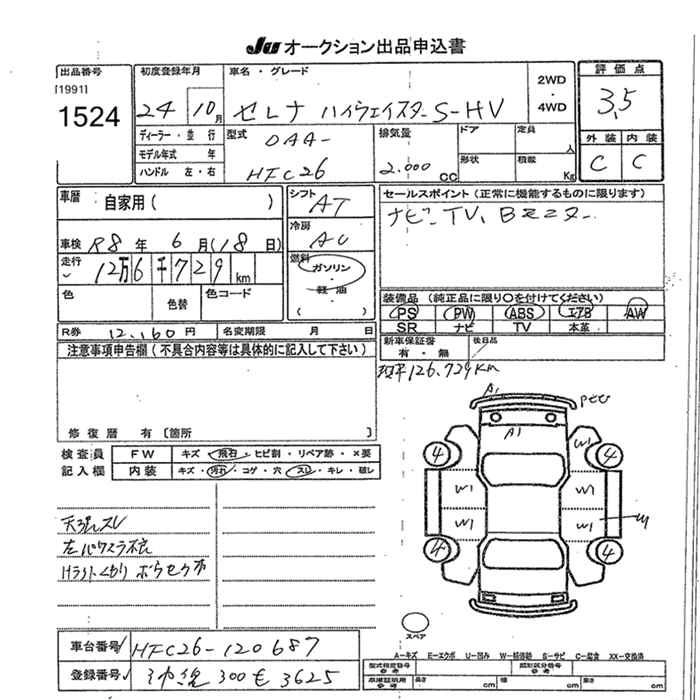 JU オークション出品申込書
出品番号
[1991]
1524
初度登録年月
24 10月
車名・グレード
セレナ ハイウェイスター S-HV
2WD
・
4WD
評価点
3,5
外装 内装
C C
ディーラー・並行
モデル年式 年
ハンドル 左・右
型式
DAA-
HFC26
排気量
2.000cc
ドア
形状
定員
人
積載
Kg
車歴
自家用 ( )
車検 R8年 6月(18日)
走行
12万6千729km
色
色替
色コード
R券 12,160円 名変期限 月 日
シフト
AT
冷房
AC
燃料
ガソリン
・
軽油
( )
セールスポイント (正常に機能するものに限ります)
ナビ、TV、Bモニター
装備品 (純正品に限り○を付けてください)
PS PW ABS エアB AW
SR ナビ TV 本革
新車保証書
有・無
後日品
現車126.729km
注意事項申告欄 (不具合内容等は具体的に記入して下さい)
修復歴 有 〔箇所 〕
検査員
記入欄
FW キズ・飛石・ヒビ割・リペア跡・×要
内装 キズ・汚れ・コゲ・穴・スレ・キレ・破レ
天張スレ
左パワスラ不良
Hライトくもり
A1
W1
4 4
W1 W1
W1 W1
4 4
スペア
A-キズ E-エクボ U-凹ミ W-補修跡 S-サビ C-腐食 XX-交換済
型式指定番号
参考
類別区分番号
参考
車庫証明用
参考
長さ cm 幅 cm 高さ cm
車台番号 HFC26-120687
登録番号 沖縄 300 も 3625